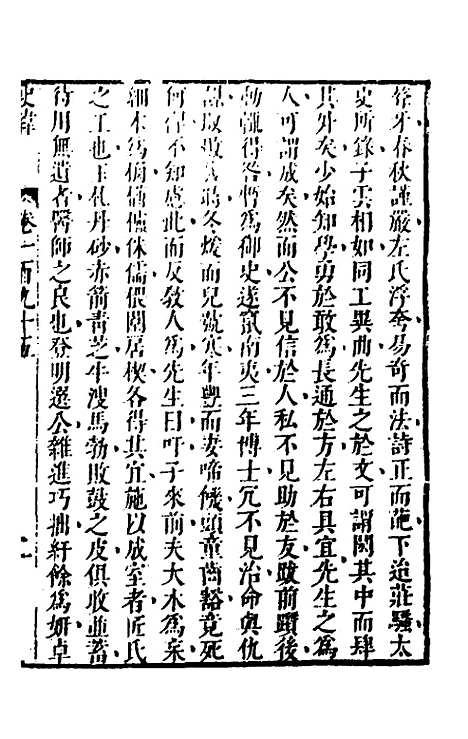 聱牙春秋謹嚴左氏浮夸易奇而法詩正而葩下迨莊騷太
史所錄子雲相如同工異曲先生之於文可謂閎其中而肆
其外矣少始知學勇於敢為長通於方左右具宜先生之為
人可謂成矣然而公不見信於人私不見助於友跋前躓後
動輒得咎暫為御史遂竄南夷三年博士冗不見治命與仇
謀取敗幾時冬煖而兒號寒年豐而妻啼饑頭童齒豁竟死
何裨不知慮此而反教人為先生曰吁子來前夫大木為杗
細木為桷欂櫨侏儒椳闑扂楔各得其宜施以成室者匠氏
之工也玉札丹砂赤箭青芝牛溲馬勃敗鼓之皮俱收並蓄
待用無遺者醫師之良也登明選公雜進巧拙紆餘為妍卓
史緯 卷一百九十五